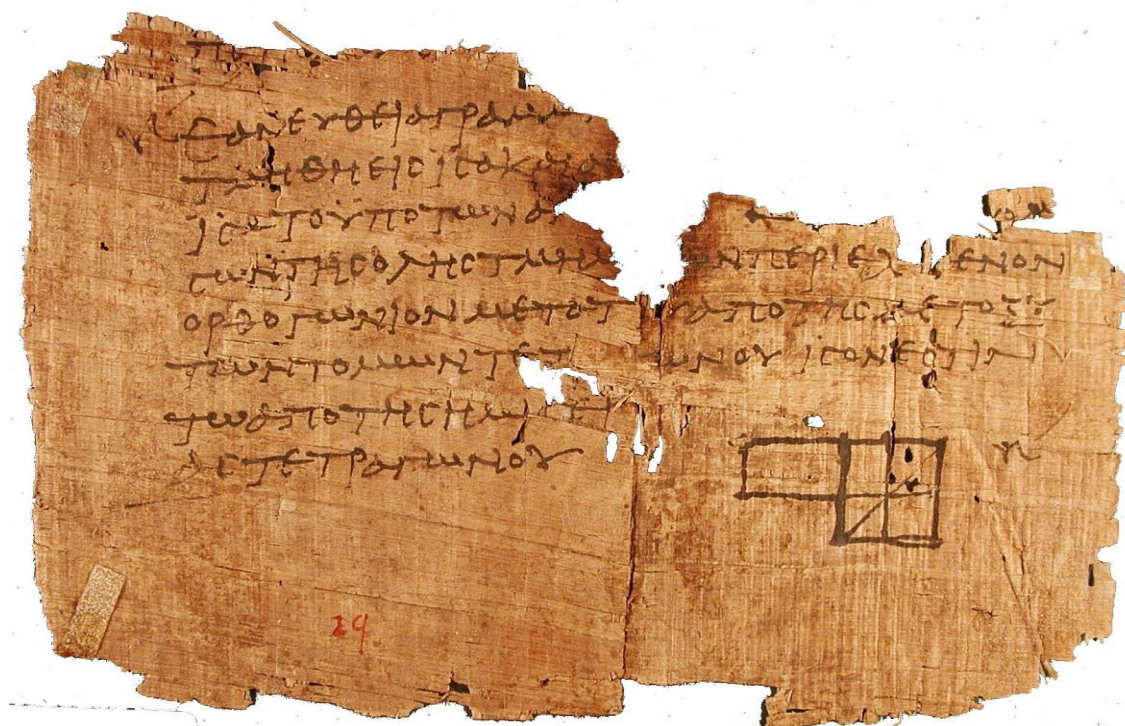 ΕΑΝ ΕΥΘΕΙΑ ΓΡΑΜΜ
ΤΜΗΘΗ ΕΙϹ ΙϹΑ ΚΑΙ Α
ΙϹΑ ΤΟ ΥΠΟ ΤΩΝ Α
ϹΩΝ ΤΗϹ ΟΛΗϹ ΤΜΗΜ ΩΝ ΠΕΡΙΕΧ ΜΕΝΟΝ
ΟΡΘΟΓΩΝΙΟΝ ΜΕΤΑ ΤΟΥ ΑΠΟ ΤΗϹ ΜΕΤΟΞΥ
ΤΩΝ ΤΟΜΩΝ ΤΕΤ ΩΝΟΥ ΙϹΟΝ ΕϹΤΙΝ
ΤΩ ΑΠΟ ΤΗϹ ΗΜΙ
ΑϹ ΤΕΤΡΑΓΩΝΟΥ
29